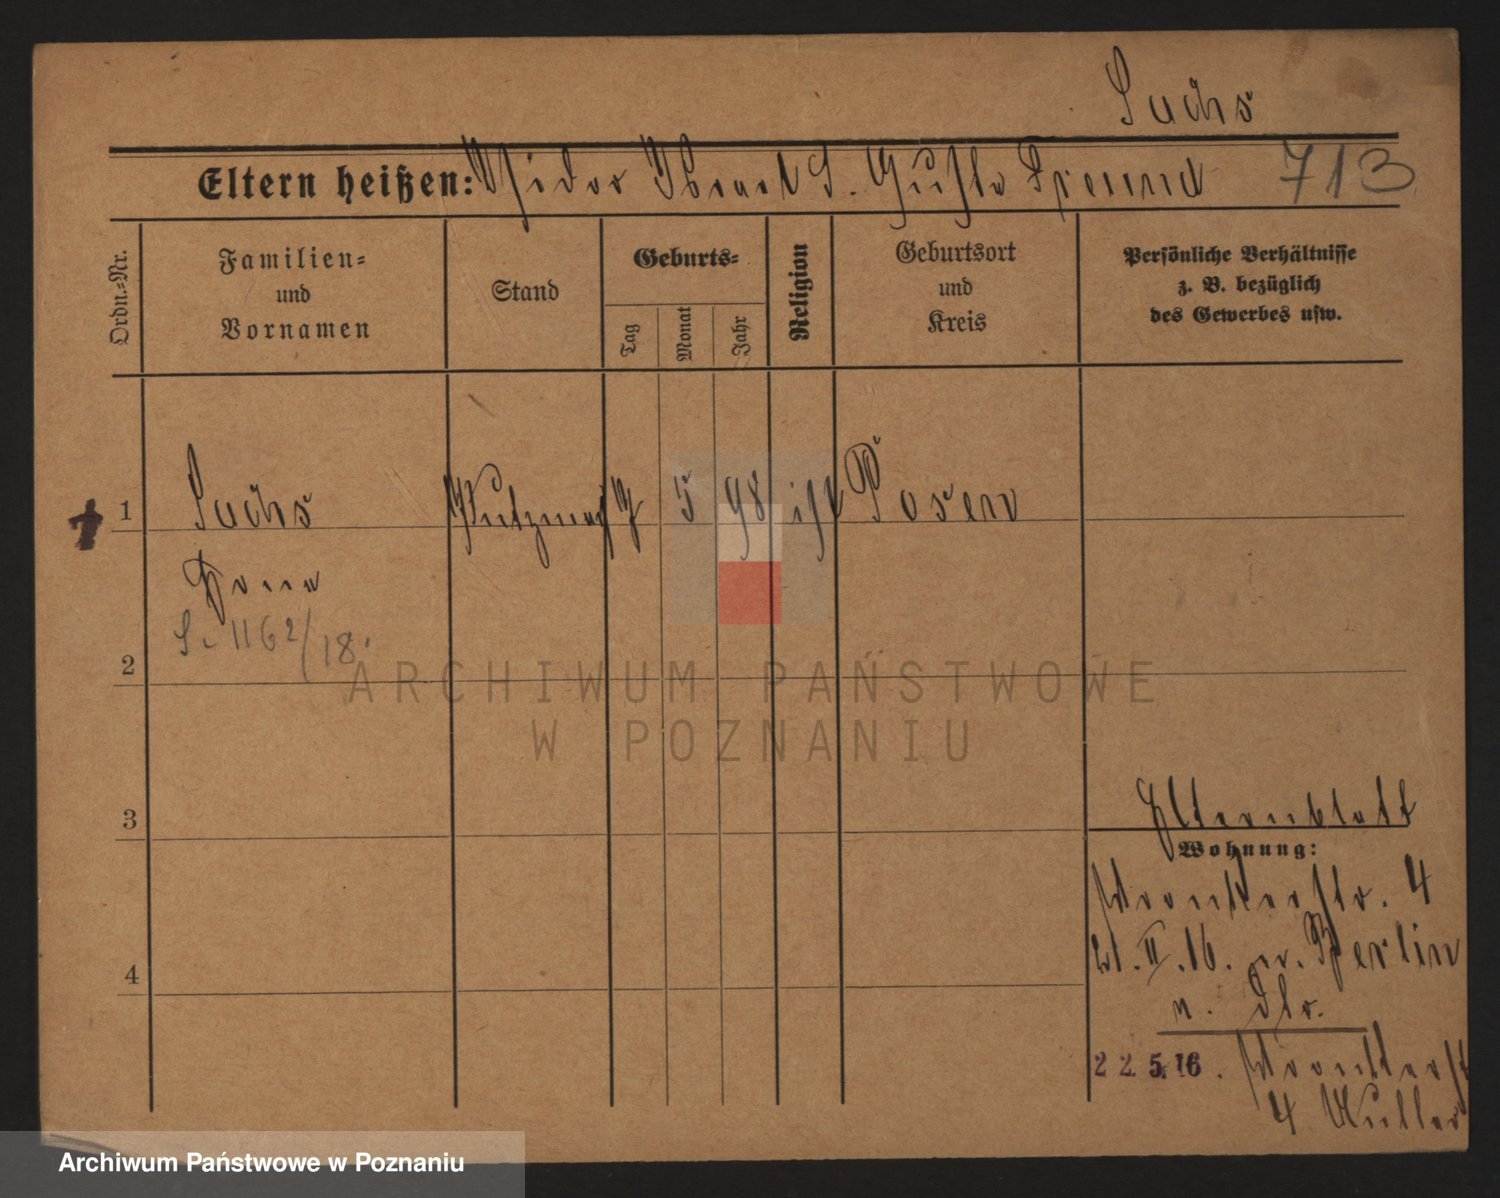 Sachs
Eltern heißen: Isidor Israel S. Gusta 713
Ordn.=Nr.
Familien=
und
Vornamen
Stand
Geburts=
Tag
Monat
Jahr
Religion
Geburtsort
und
Kreis
Persönliche Verhältnisse
z. B. bezüglich
des Gewerbes usw.
1 Sachs Putzmach 5 98 isr Posen
S. 1162/18.
2
ARCHIWUM PAŃSTWOWE
W POZNANIU
3
Elternblatt
Wohnung:
Wronkerstr. 4
21. II. 16. n. Berlin
4
22.5.16. Wronkerst
4 Müller
Archiwum Państwowe w Poznaniu